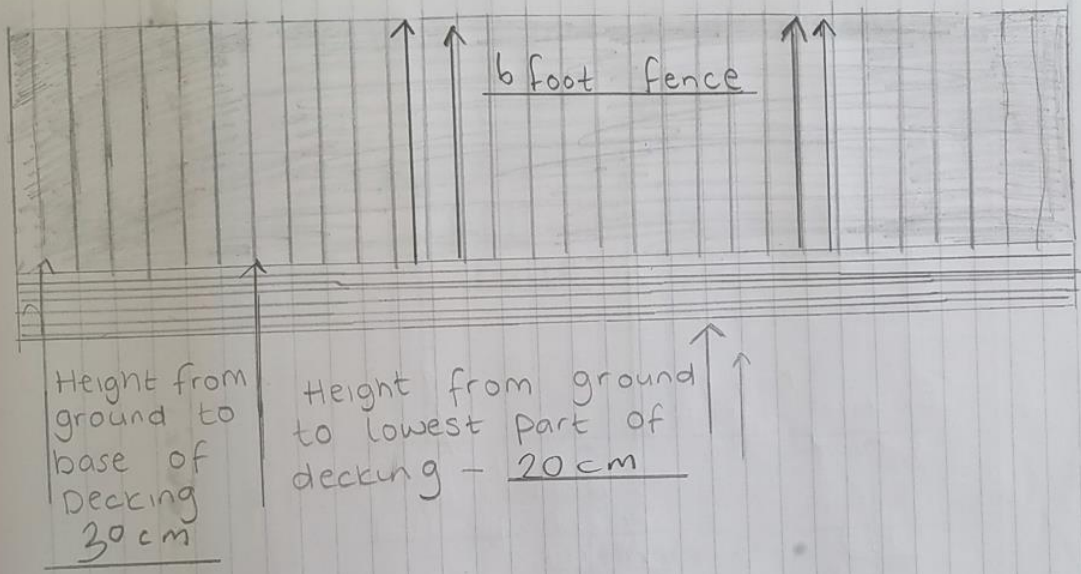 6 foot fence
Height from
ground to
base of
Decking
30 cm
Height from ground
to lowest part of
decking - 20 cm